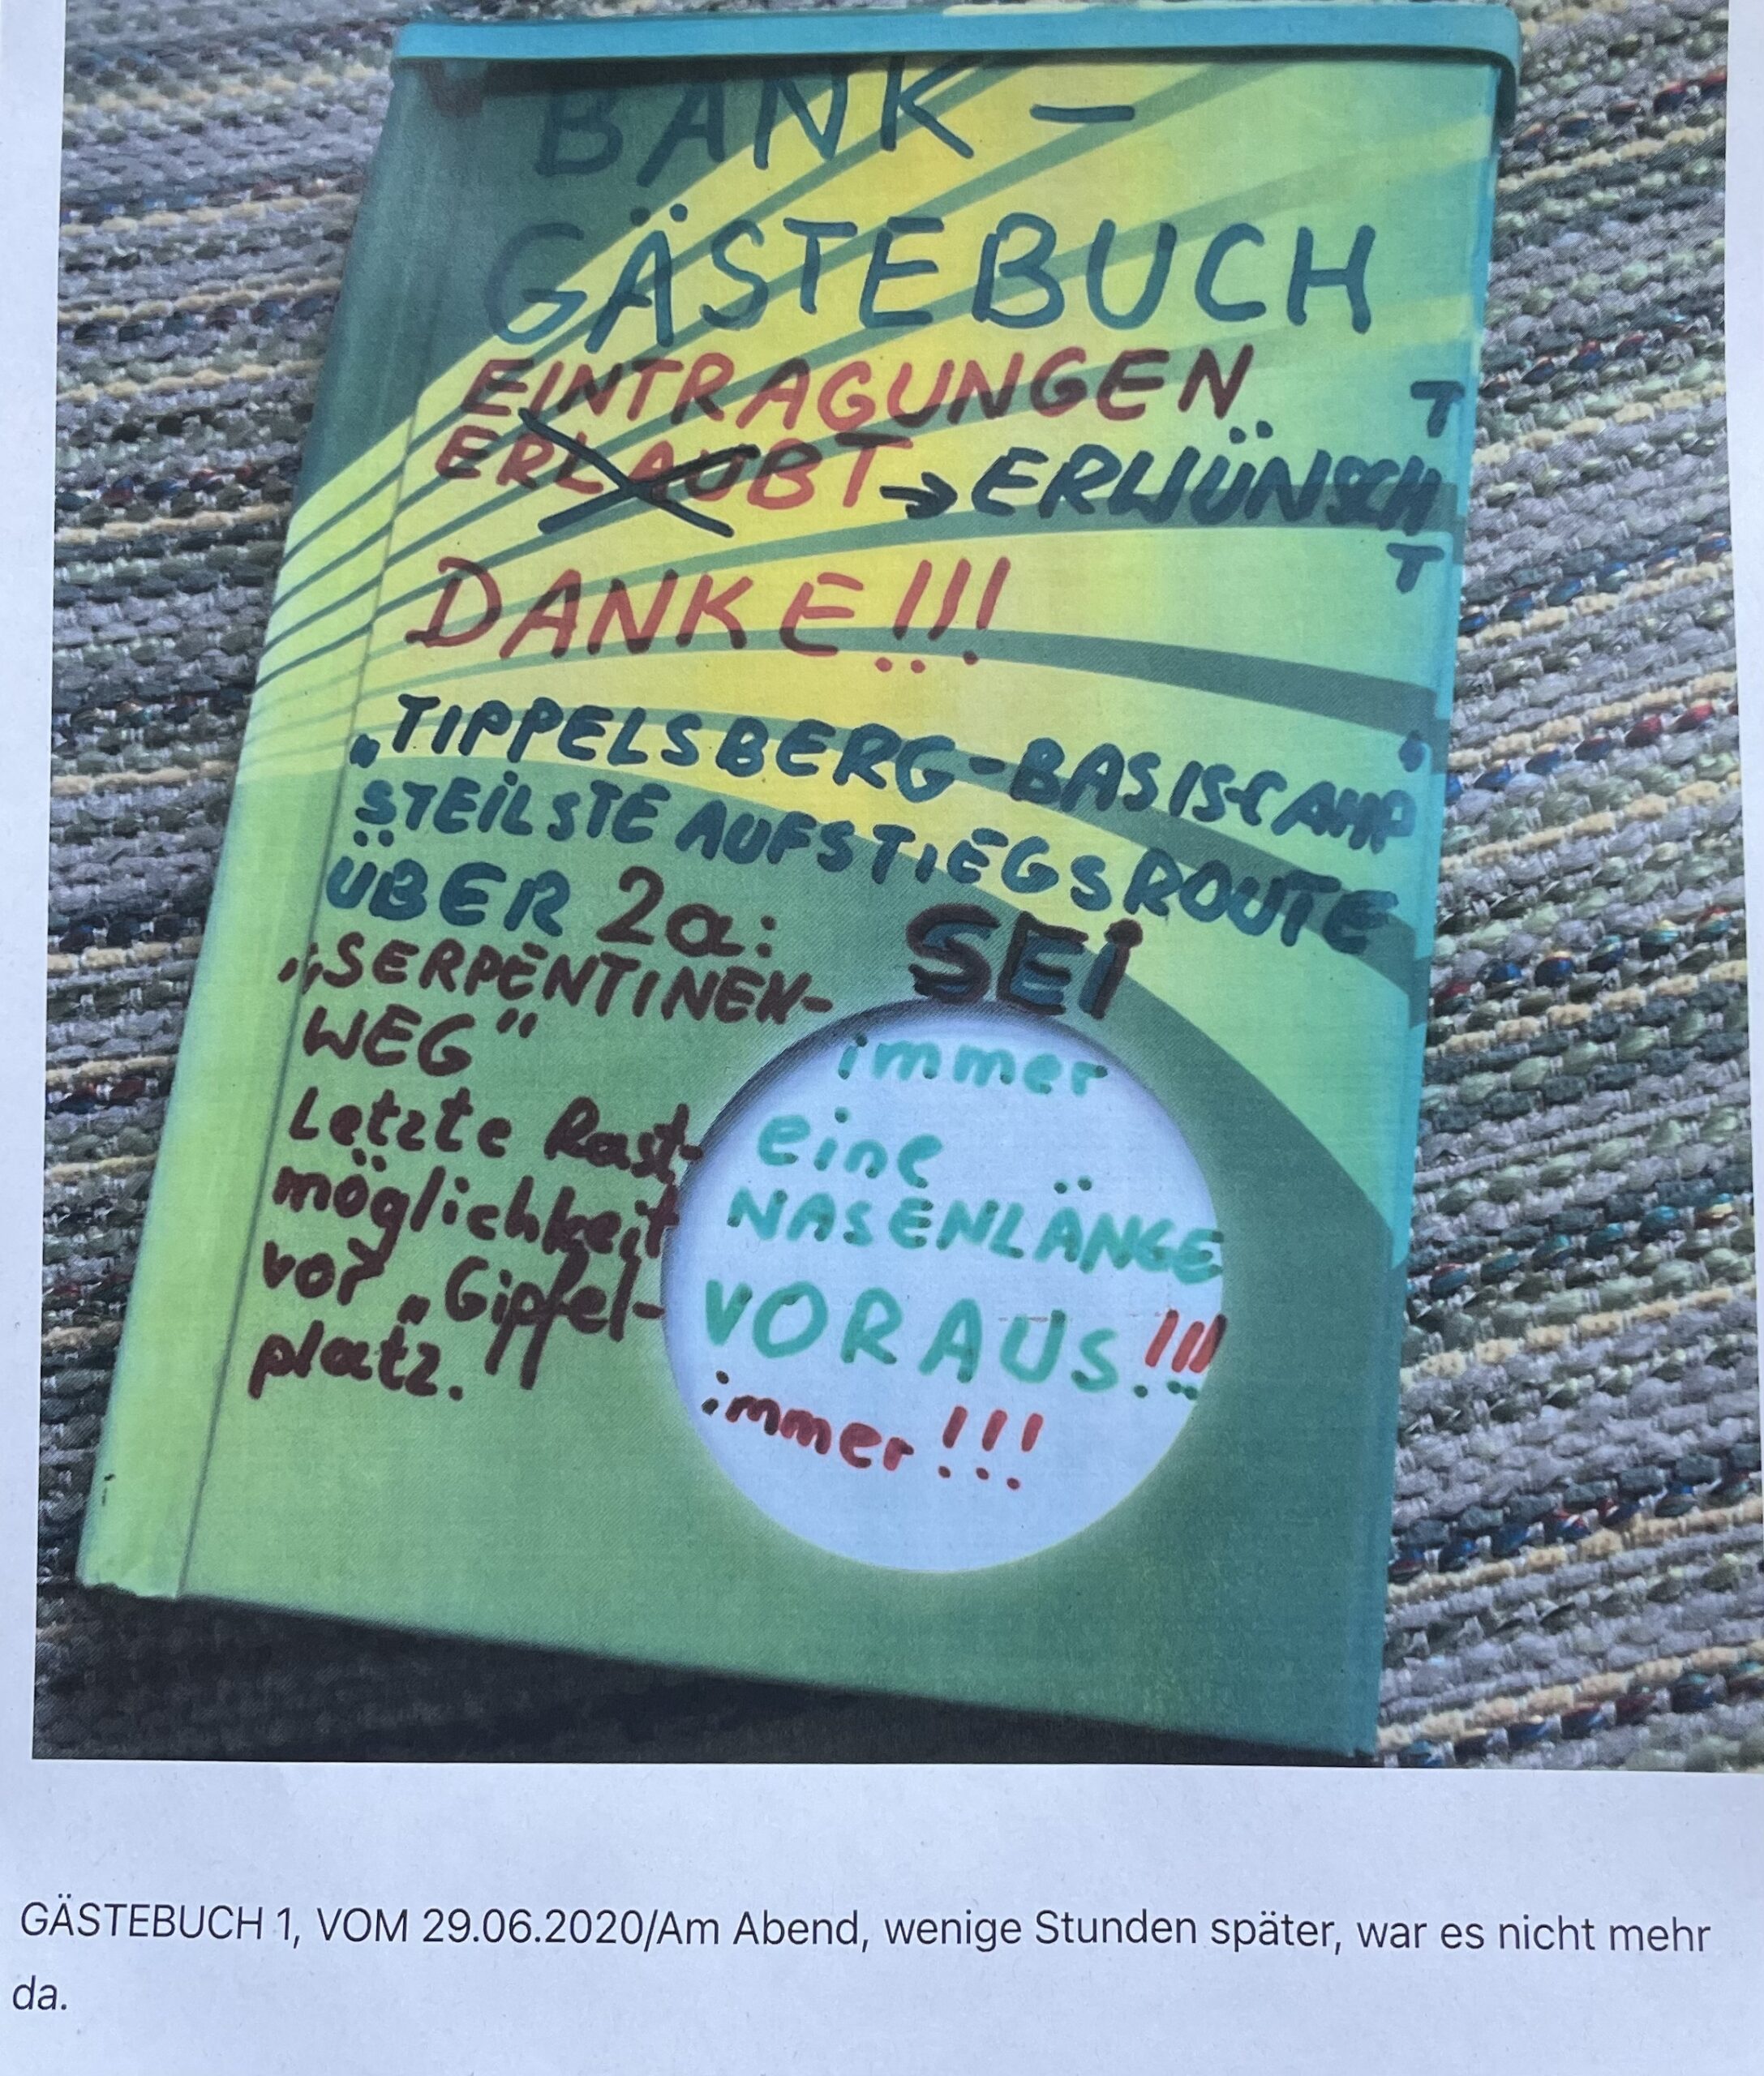 BANK-
GÄSTEBUCH
EINTRAGUNGEN
ERLAUBT → ERWÜNSCHT
T
DANKE!!!
„TIPPELSBERG-BASISCAMP"
STEILSTE AUFSTIEGSROUTE
ÜBER 2a:
„SERPENTINEN-
WEG"
Letzte Rast-
möglichkeit
vor „Gipfel-
platz."
SEI
immer
eine
NASENLÄNGE
VORAUS!!!
immer!!!
GÄSTEBUCH 1, VOM 29.06.2020/Am Abend, wenige Stunden später, war es nicht mehr
da.